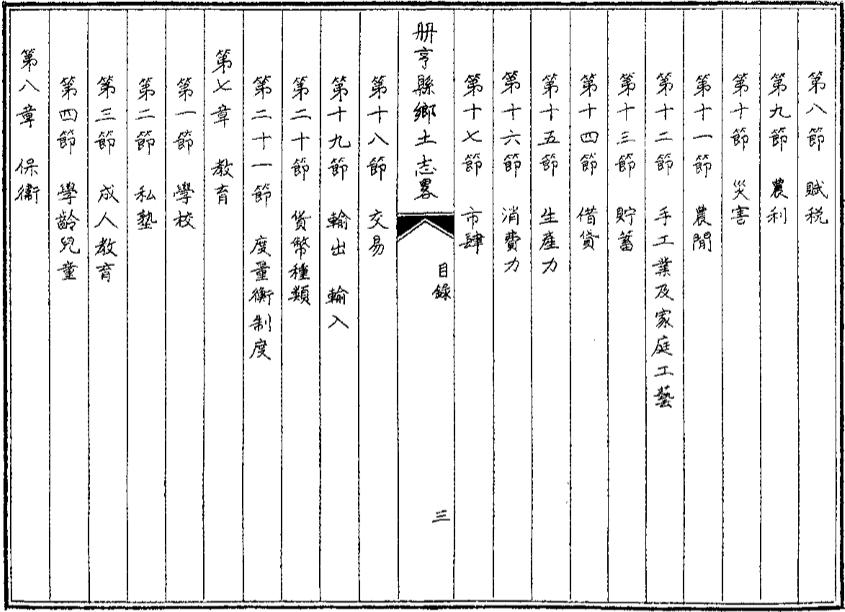 第八節　賦税
第九節　農利
第十節　災害
第十一節　農閒
第十二節　手工業及家庭工藝
第十三節　貯蓄
第十四節　借貸
第十五節　生產力
第十六節　消費力
第十七節　市肆
册亨縣鄉土志畧　目錄　三
第十八節　交易
第十九節　輸出　輸入
第二十節　貨幣種類
第二十一節　度量衡制度
第七章　教育
第一節　學校
第二節　私塾
第三節　成人教育
第四節　學齡兒童
第八章　保衞